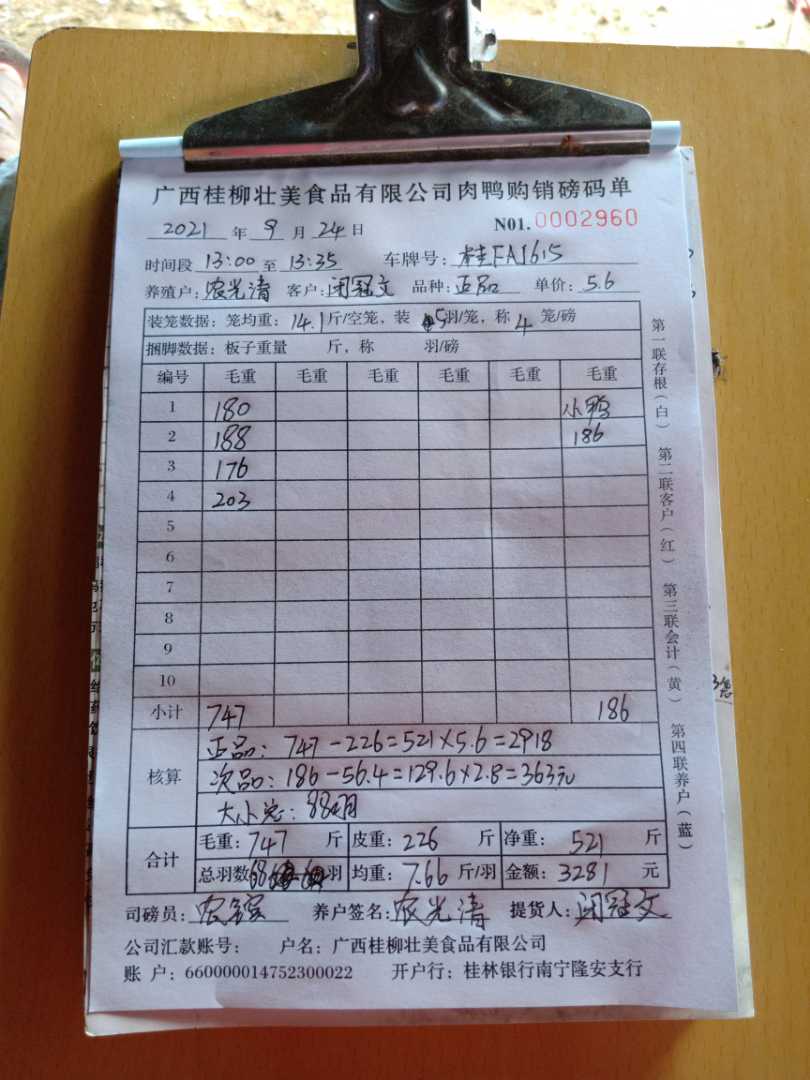 广西桂柳壮美食品有限公司肉鸭购销磅码单
2021 年 9 月 24 日 N01.0002960
时间段 13:00 至 13:35 车牌号: 桂FA1615
养殖户: 农光清 客户: 闭冠文 品种: 正品 单价: 5.6
装笼数据: 笼均重: 14.1斤/空笼, 装 5羽/笼, 称 4 笼/磅
捆脚数据: 板子重量 斤, 称 羽/磅
编号 毛重 毛重 毛重 毛重 毛重 毛重
1 180 小鸭
2 188 186
3 176
4 203
5
6
7
8
9
10
小计 747 186
核算
正品: 747-226=521×5.6=2918
次品: 186-56.4=129.6×2.8=363元
大小总: 88羽
合计
毛重: 747 斤 皮重: 226 斤 净重: 521 斤
总羽数 68 羽 均重: 7.66 斤/羽 金额: 3281 元
司磅员: 养户签名: 农光清 提货人: 闭冠文
公司汇款账号: 户名: 广西桂柳壮美食品有限公司
账 户: 660000014752300022 开户行: 桂林银行南宁隆安支行
第一联存根(白) 第二联客户(红) 第三联会计(黄) 第四联养户(蓝)